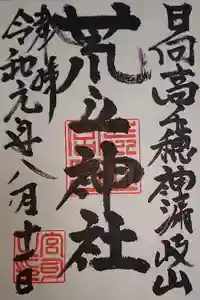 日向高千穂神漏岐山
荒立神社
奉拝
令和元年八月十一日